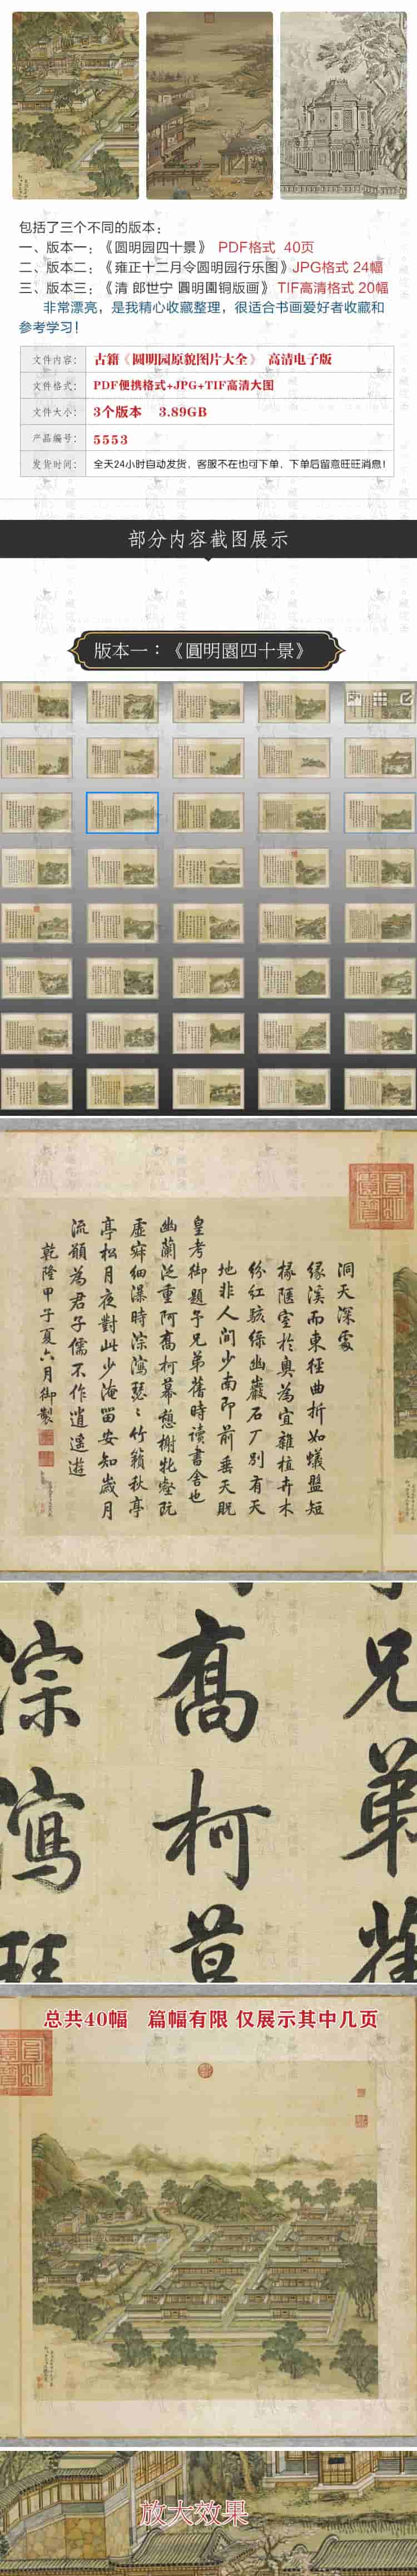 包括了三个不同的版本：
一、版本一：《圆明园四十景》 PDF格式 40页
二、版本二：《雍正十二月令圆明园行乐图》JPG格式 24幅
三、版本三：《清 郎世宁 圆明園铜版画》 TIF高清格式 20幅
非常漂亮，是我精心收藏整理，很适合书画爱好者收藏和
参考学习！
文件内容： 古籍《圆明园原貌图片大全》 高清电子版
文件格式： PDF便携格式+JPG+TIF高清大图
文件大小： 3个版本 3.89GB
产品编号： 5553
发货时间： 全天24小时自动发货，客服不在也可下单，下单后留意旺旺消息！
部分内容截图展示
版本一：《圓明園四十景》
洞天深處
缘溪而東徑曲折如蟻盤短
椽陋室於奥為宜雜植卉木
紛紅駭綠幽巖石厂別有天
地非人間少南即前垂天貺
皇考御題予兄弟舊時讀書舍也
幽蘭泛重阿喬柯幕憩榭牝壑阮
虛寂細瀑時淙瀉瑟瑟竹籟秋亭
亭松月夜對此少淹留安知歲月
流願為君子儒不作逍遥遊
乾隆甲子夏六月御製
兄
弟
舊
喬
柯
淙
瀉
总共40幅 篇幅有限 仅展示其中几页
放大效果